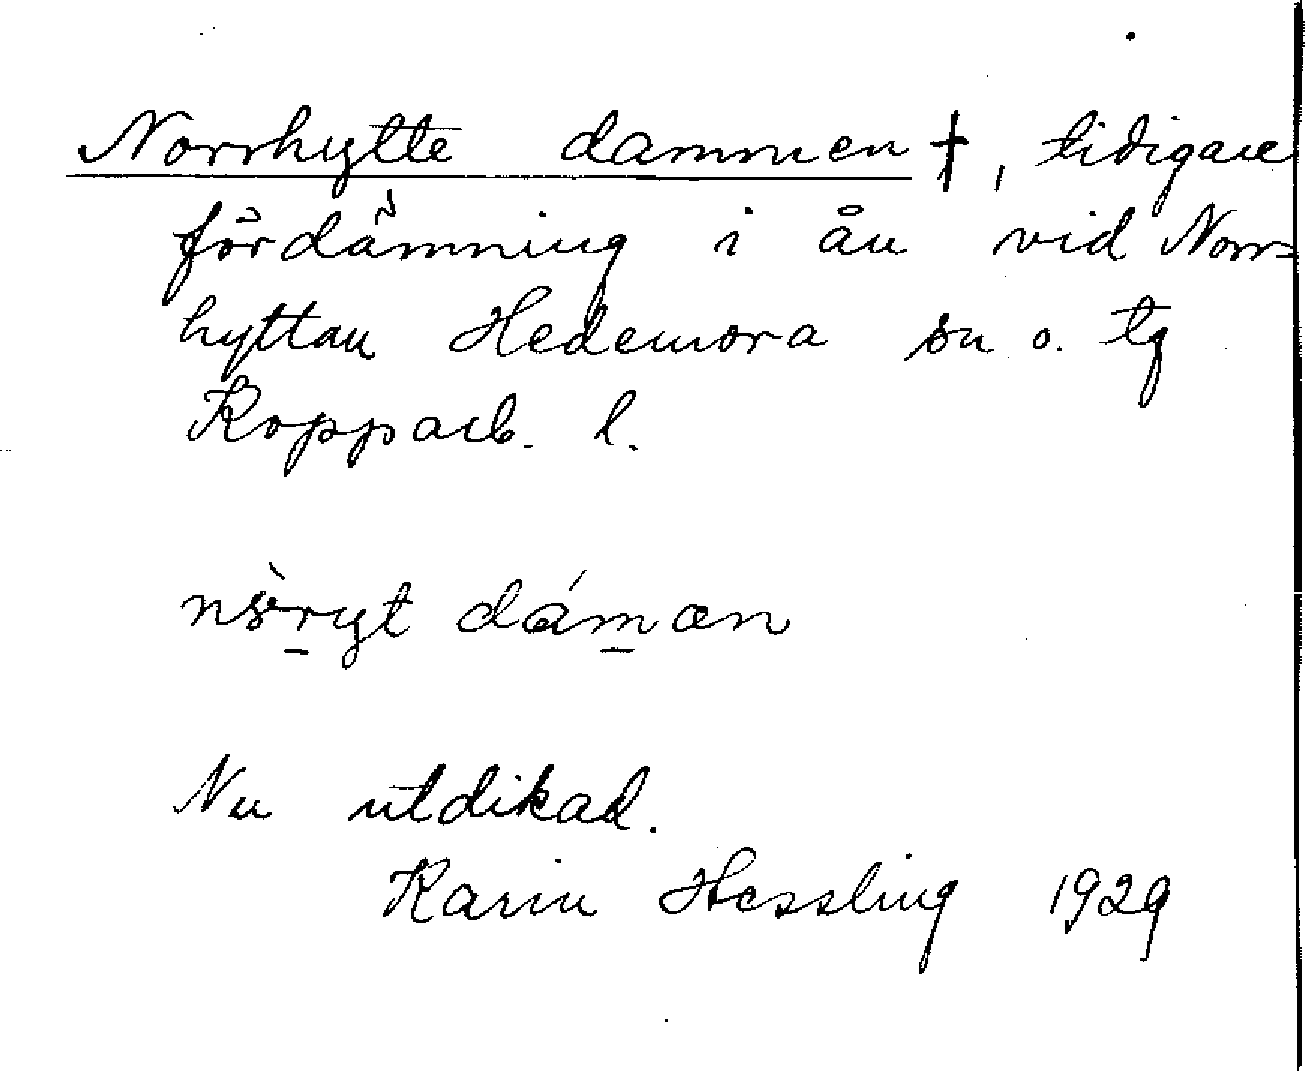 Norrhytte dammen †, tidigare
fördämning i ån vid Norr=
hyttan Hedemora sn o. tg
Kopparb. l.
dámæn
Nu utdikad.
Karin Hessling 1929